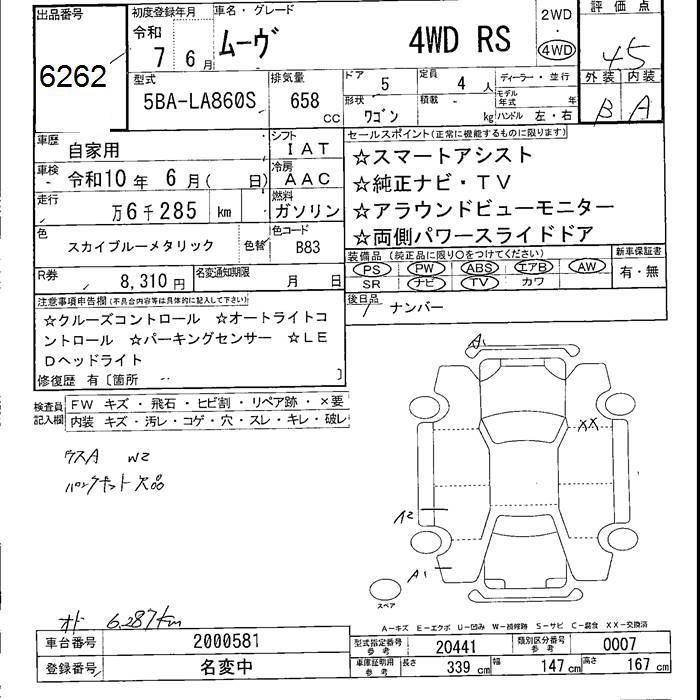 出品番号 初度登録年月 車名・グレード 2WD 評価点
令和 7 年 6 月 ムーヴ 4WD RS 4WD 4.5
6262
型式 排気量 ドア 5 定員 4 人 ディーラー・並行 外装 内装
5BA-LA860S 658 CC 形状 ワゴン 積載 - kg モデル年式 年 ハンドル 左・右 B A
車歴 自家用 シフト IAT セールスポイント(正常に機能するものに限ります)
車検 令和10年 6月( 日) 冷房 AAC ☆スマートアシスト
走行 万6千285 km 燃料 ガソリン ☆純正ナビ・TV
☆アラウンドビューモニター
色 スカイブルーメタリック 色替 色コード B83 ☆両側パワースライドドア
装備品 (純正品に限り○をつけてください) 新車保証書
R券 8,310円 名変通知期限 月 日 PS PW ABS エアB AW 有・無
SR ナビ TV カワ
注意事項申告欄(不具合内容等は具体的に記入して下さい) 後日品 ナンバー
☆クルーズコントロール ☆オートライトコ
ントロール ☆パーキングセンサー ☆LE
Dヘッドライト
修復歴 有〔箇所 〕
検査員記入欄 FW キズ・飛石・ヒビ割・リペア跡・×要
内装 キズ・汚レ・コゲ・穴・スレ・キレ・破レ
A1
XX
ウスA W2
パンクキット欠品
A2
A1
スペア
オド 6,287km
A-キズ E-エクボ U-凹み W-補修跡 S-サビ C-腐食 XX-交換済
車台番号 2000581 型式指定番号 参考 20441 類別区分番号 参考 0007
登録番号 名変中 車庫証明用 参考 長さ 339 cm 幅 147 cm 高さ 167 cm